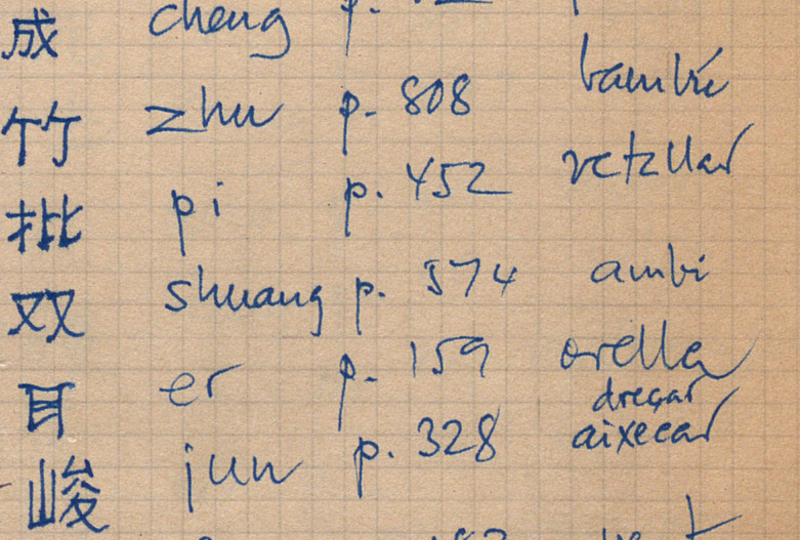 成 cheng p.
竹 zhu p. 808 bambú
批 pi p. 452 retallar
双 shuang p. 574 ambi
耳 er p. 159 orella
峻 jun p. 328 dreçar
aixecar